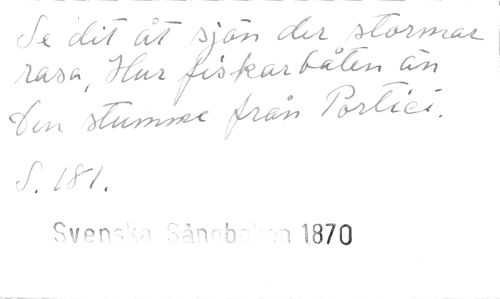 Se dit åt sjön der stormar
rasa, Hur fiskarbåten än
Den stumme från Portici.
S. 181.
Svenska Sångboken 1870